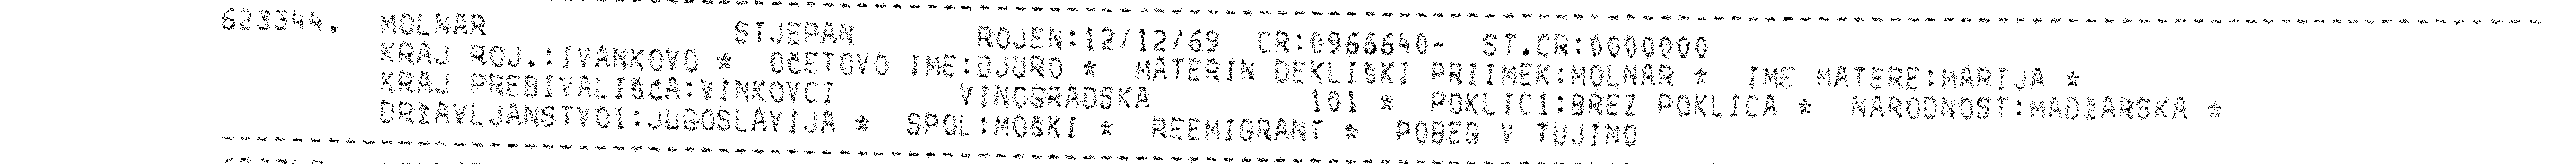 623344. MOLNAR STJEPAN ROJEN:12/12/69 CR:0966640- ST.CR:0000000
KRAJ ROJ.:IVANKOVO * OČETOVO IME:DJURO * MATERIN DEKLIŠKI PRIIMEK:MOLNAR * IME MATERE:MARIJA *
KRAJ PREBIVALIŠČA:VINKOVCI VINOGRADSKA 101 * POKLIC1:BREZ POKLICA * NARODNOST:MADŽARSKA *
DRŽAVLJANSTVO1:JUGOSLAVIJA * SPOL:MOŠKI * REEMIGRANT * POBEG V TUJINO